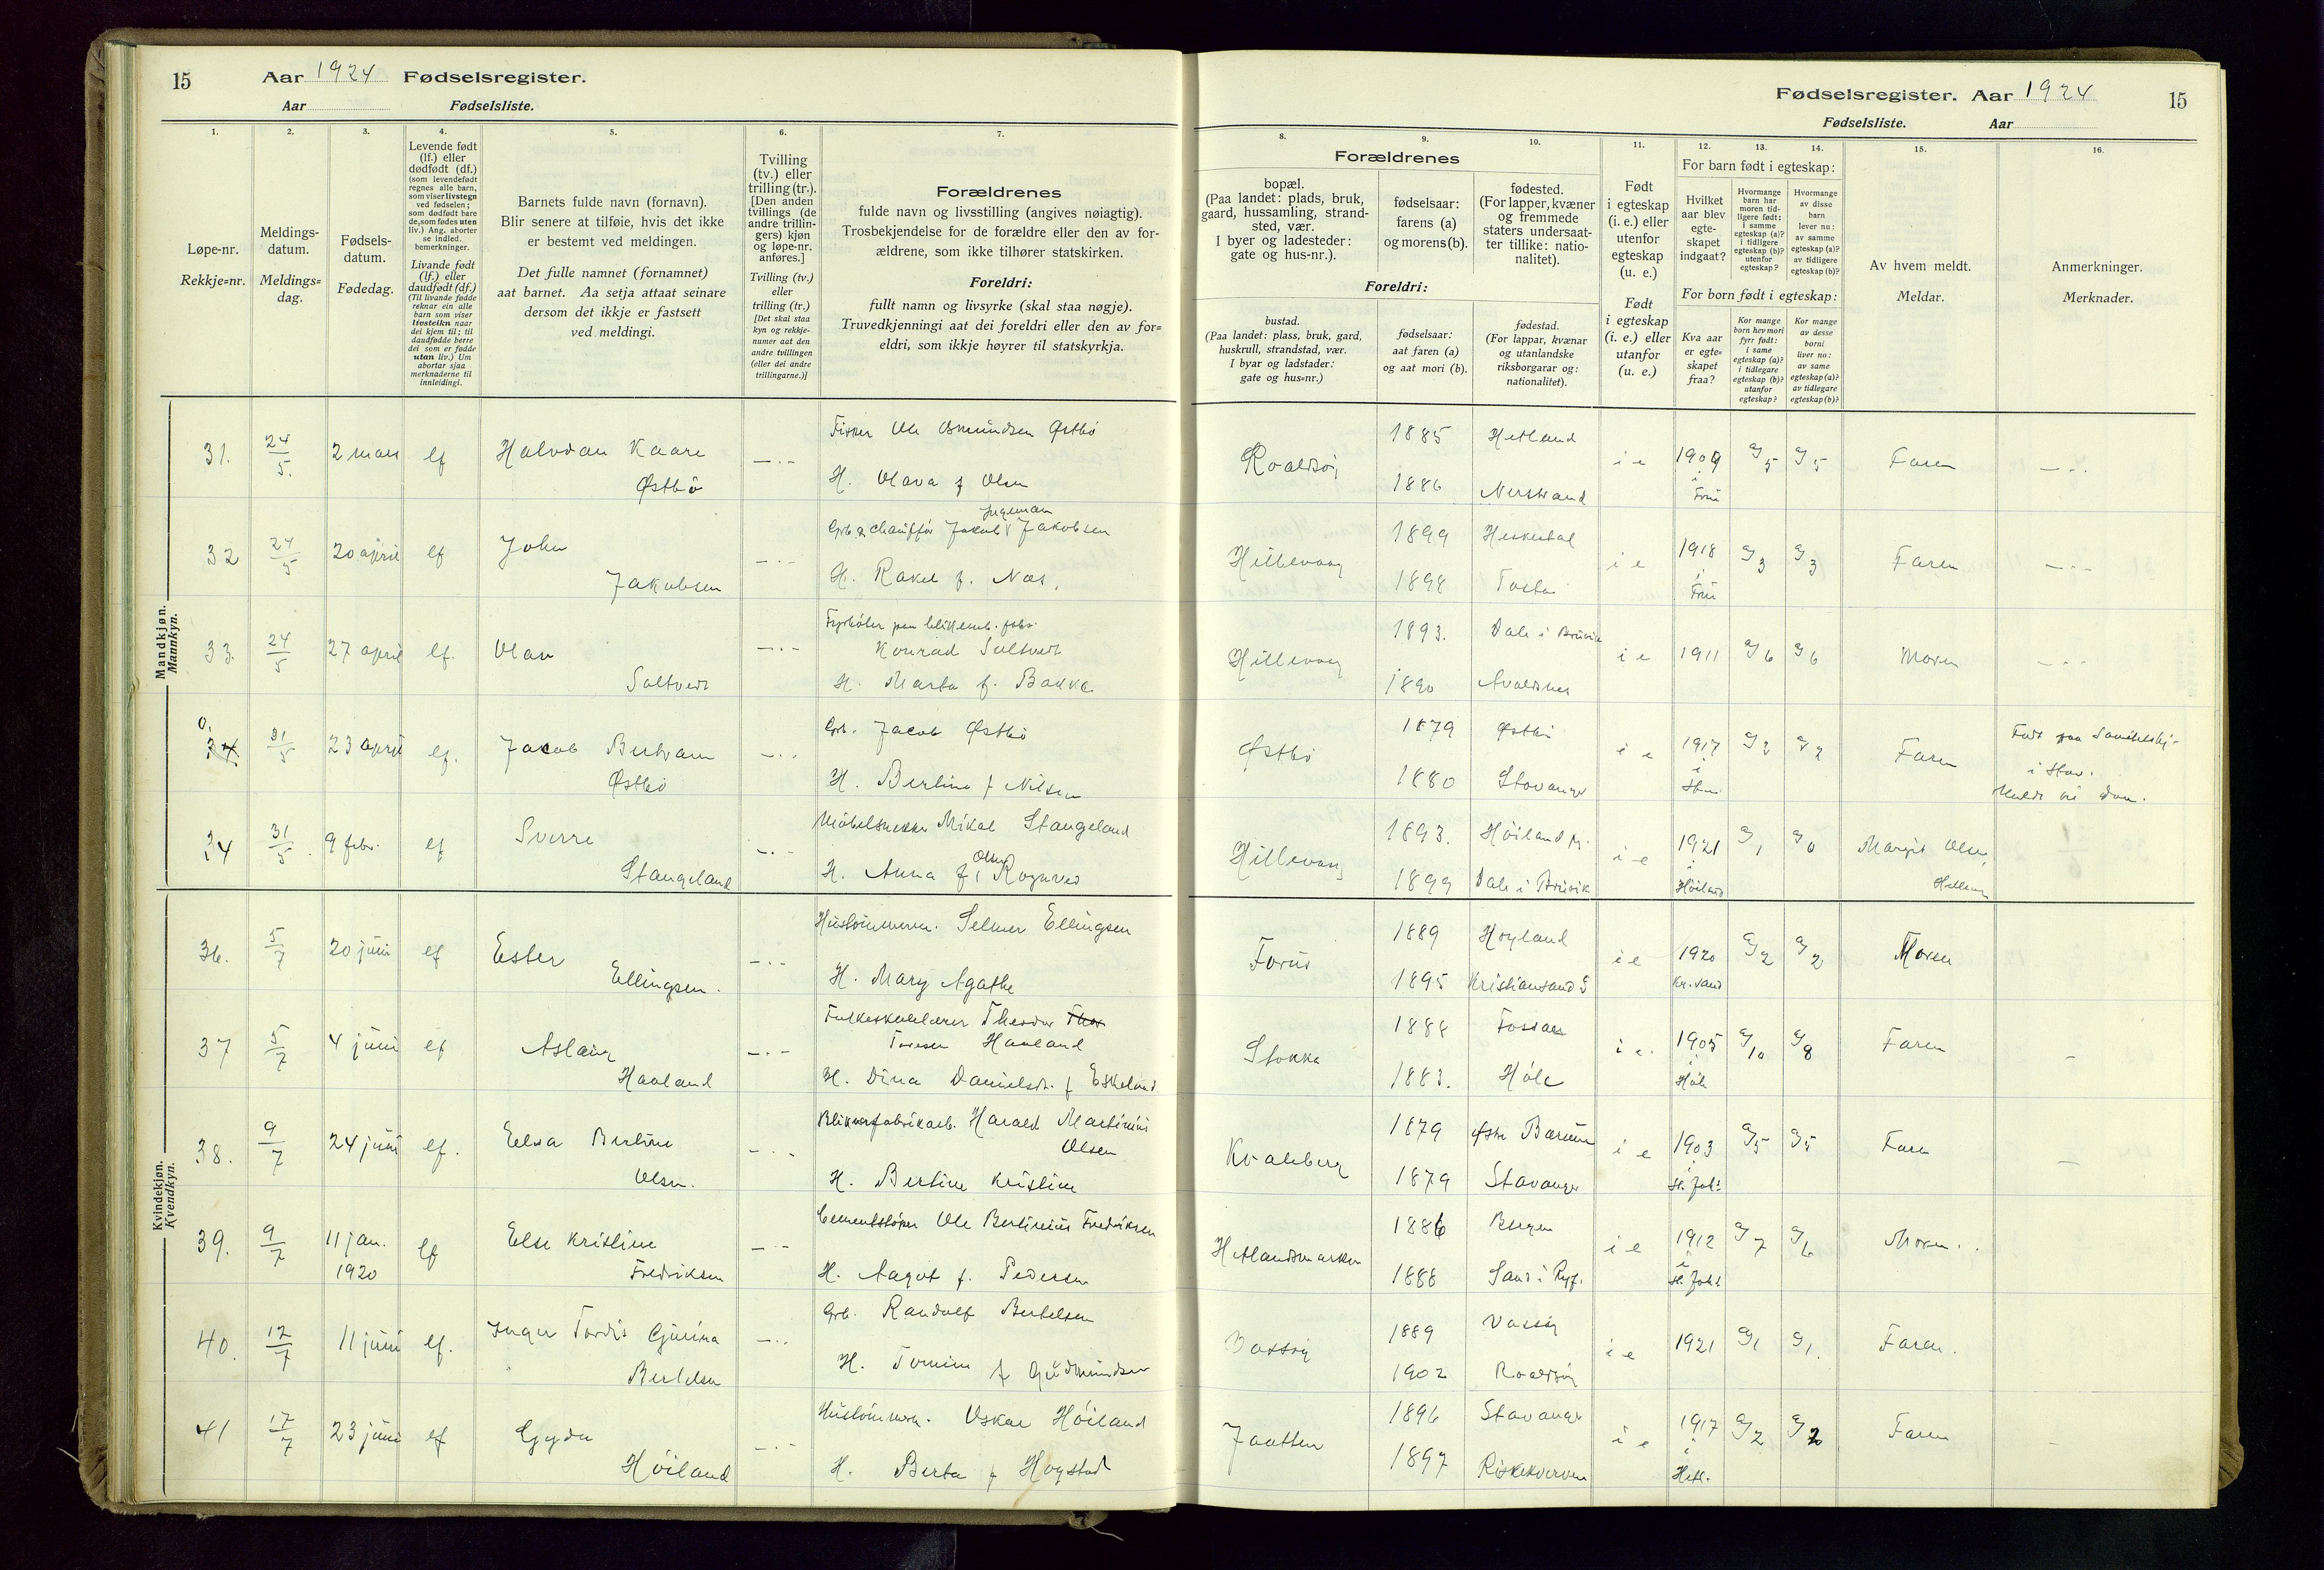 15
Aar 1924 Fødselsregister.
Aar Fødselsliste.
Fødselsregister. Aar 1924
15
Fødselsliste. Aar
1.
Løpe-nr.
Rekkje-nr.
2.
Meldings-
datum.
Meldings-
dag.
3.
Fødsels-
datum.
Fødedag.
4.
Levende født
(lf.) eller
dødfødt (df.)
(som levendefødt
regnes alle barn,
som viser livstegn
ved fødselen;
som dødfødt bare
de, som fødes uten
liv.) Ang. aborter
se indled.
bemerkninger.
Livande født
(lf.) eller
daudfødt (df.)
(Til livande fødde
reknar ein alle
barn som viser
livsteikn naar
dei kjem til; til
daudfødde berre
dei som er fødde
utan liv.) Um
abortar sjaa
merknaderne til
innleidingi.
5.
Barnets fulde navn (fornavn).
Blir senere at tilføie, hvis det ikke
er bestemt ved meldingen.
Det fulle namnet (fornamnet)
aat barnet. Aa setja attaat seinare
dersom det ikkje er fastsett
ved meldingi.
6.
Tvilling
(tv.) eller
trilling (tr.).
[Den anden
tvillings (de
andre trillin-
gers) kjøn
og løpe-nr.
anføres.]
Tvilling (tv.)
eller
trilling (tr.)
[Det skal staa
kyn og rekkje-
numer aat den
andre tvillingen
(eller dei andre
trillingarne.)]
7.
Forældrenes
fulde navn og livsstilling (angives nøiagtig).
Trosbekjendelse for de forældre eller den av for-
ældrene, som ikke tilhører statskirken.
Foreldri:
fullt namn og livsyrke (skal staa nøgje).
Truvedkjenningi aat dei foreldri eller den av for=
eldri, som ikkje høyrer til statskyrkja.
Forældrenes
8.
bopæl.
(Paa landet: plads, bruk,
gaard, hussamling, strand-
sted, vær.
I byer og ladesteder:
gate og hus-nr.).
9.
fødselsaar:
farens (a)
og morens (b).
10.
fødested.
(For lapper, kvæner
og fremmede
staters undersaat-
ter tillike: natio-
nalitet).
Foreldri:
bustad.
(Paa landet: plass, bruk, gard,
huskrull, strandstad, vær.
I byar og ladstader:
gate og hus=nr.)
fødselsaar:
aat faren (a)
og aat mori (b).
fødestad.
(For lappar, kvænar
og utanlandske
riksborgarar og:
nationalitet).
11.
Født
i egteskap
(i. e.) eller
utenfor
egteskap
(u. e.)
Født
i egteskap
(i. e.) eller
utanfor
(u. e.)
For barn født i egteskap:
12.
Hvilket
aar blev
egte-
skapet
indgaat?
13.
Hvormange
barn har
moren tid-
ligere født:
i samme
egteskap (a)?
i tidligere
egteskap (b)?
utenfor
egteskap?
14.
Hvormange
av disse
barn
lever nu:
av samme
egteskap (a)?
av tidligere
egteskap (b)?
For born født i egteskap:
Kva aar
er egte=
skapet
fraa?
Kor mange
born hev mori
fyrr født:
i same
egteskap (a)?
i tidlegare
egteskap (b)?
utanfor
egteskap?
Kor mange
av desse
borni
liver no:
av same
egteskap (a)?
av tidlegare
egteskap (b)?
15.
Av hvem meldt.
Meldar.
16.
Anmerkninger.
Merknader.
Mandkjøn.
Mannkyn.
31. 24/5. 2 mars lf Halvdan Kaare
Østbø
Fisker Ole Osmundsen Østbø
H. Olava f Olsen
Roaldsøy 1885 Hetland
1886 Nerstrand
i e 1909 g/5 g/5 Faren
32 24/5 20 april lf John
Jakobsen
Ingeman
Grb. & chauffør Jakob Jakobsen
H. Rakel f. Næs.
Hillevaag 1899 Heskestad
1898
i e 1918 g/3 g/3 Faren
33. 24/5 27 april lf. Olav
Saltvedt
Konrad Saltvedt
H. Marta f. Bakke
Hillevaag 1893. Dale i Bruvik
1890 Avaldsnes
i e 1911 g/6 g/6 Moren
0.
34. 31/5 23 april lf. Jacob Bertram
Østbø
Grb. Jacob Østbø
H. Bertine f Nilsen
Østbø 1879 Østbø
1880 Stavanger
i e 1917 g/2 g/2 Faren
i Stav.
34 31/5. 9 febr. lf Sverre
Stangeland
Møbelsnekker Mikal Stangeland
Olsen
H. Anna f, Rognved
Hillevaag 1893. Høiland pr.
1899 Dale i Bruvik
i e 1921 i Høiland g/1 g/0 Margit Olsen,
Hillevaag
Kvindekjøn.
Kvendkyn.
36. 5/7 20 juni lf Ester
Ellingsen.
Hustømmerm. Selmer Ellingsen
H. Mary Agathe
Forus 1889 Høyland
1895 Kristiansand S
i e 1920 Kr.sand g/2 g/2 Moren
37 5/7 4 juni lf Aslaug
Haaland
Folkeskolelærer Theodor Thor
Toresen Haaland
H. Dina Danielsdr. f Eskeland
Stokka 1888 Fossan
1883. Høle
i e. 1905 i Høle g/10 g/8 Faren
38. 9/7 24 juni lf. Elsa Bertine
Olsen.
Blikvarefabrikarb. Harald Martinius
Olsen
H. Bertine Kristine
Kvaleberg 1879 Østre Bærum
1879 Stavanger
i e 1903 i St. Joh. g/5 g/5 Faren
39. 9/7 11 jan.
1920 lf Else Kristine
Fredriksen
Cementstøper Ole Bertinius Fredriksen
H. Aagot f. Pedersen
Hetlandsmarken 1886 Bergen
1888 Sand i Ryf.
i e 1912 i St. Joh. g/7 g/6 Moren.
40. 12/7 11 juni lf. Inger Tordis Gjurina
Bertelsen
Grb. Randolf Bertelsen
H. Tomine f Gudmundsen
Vassøy 1889 Vassøy
1902 Roaldsøy
i e 1921 g/1 g/1. Faren.
41 17/7 23 juni lf Gyda
Høiland
Hustømmerm. Oskar Høiland
H. Berta f Hogstad
Jaatten 1896 Stavanger
1897 Riskekverven
i e 1917 i Hetl. g/2 g/2 Faren